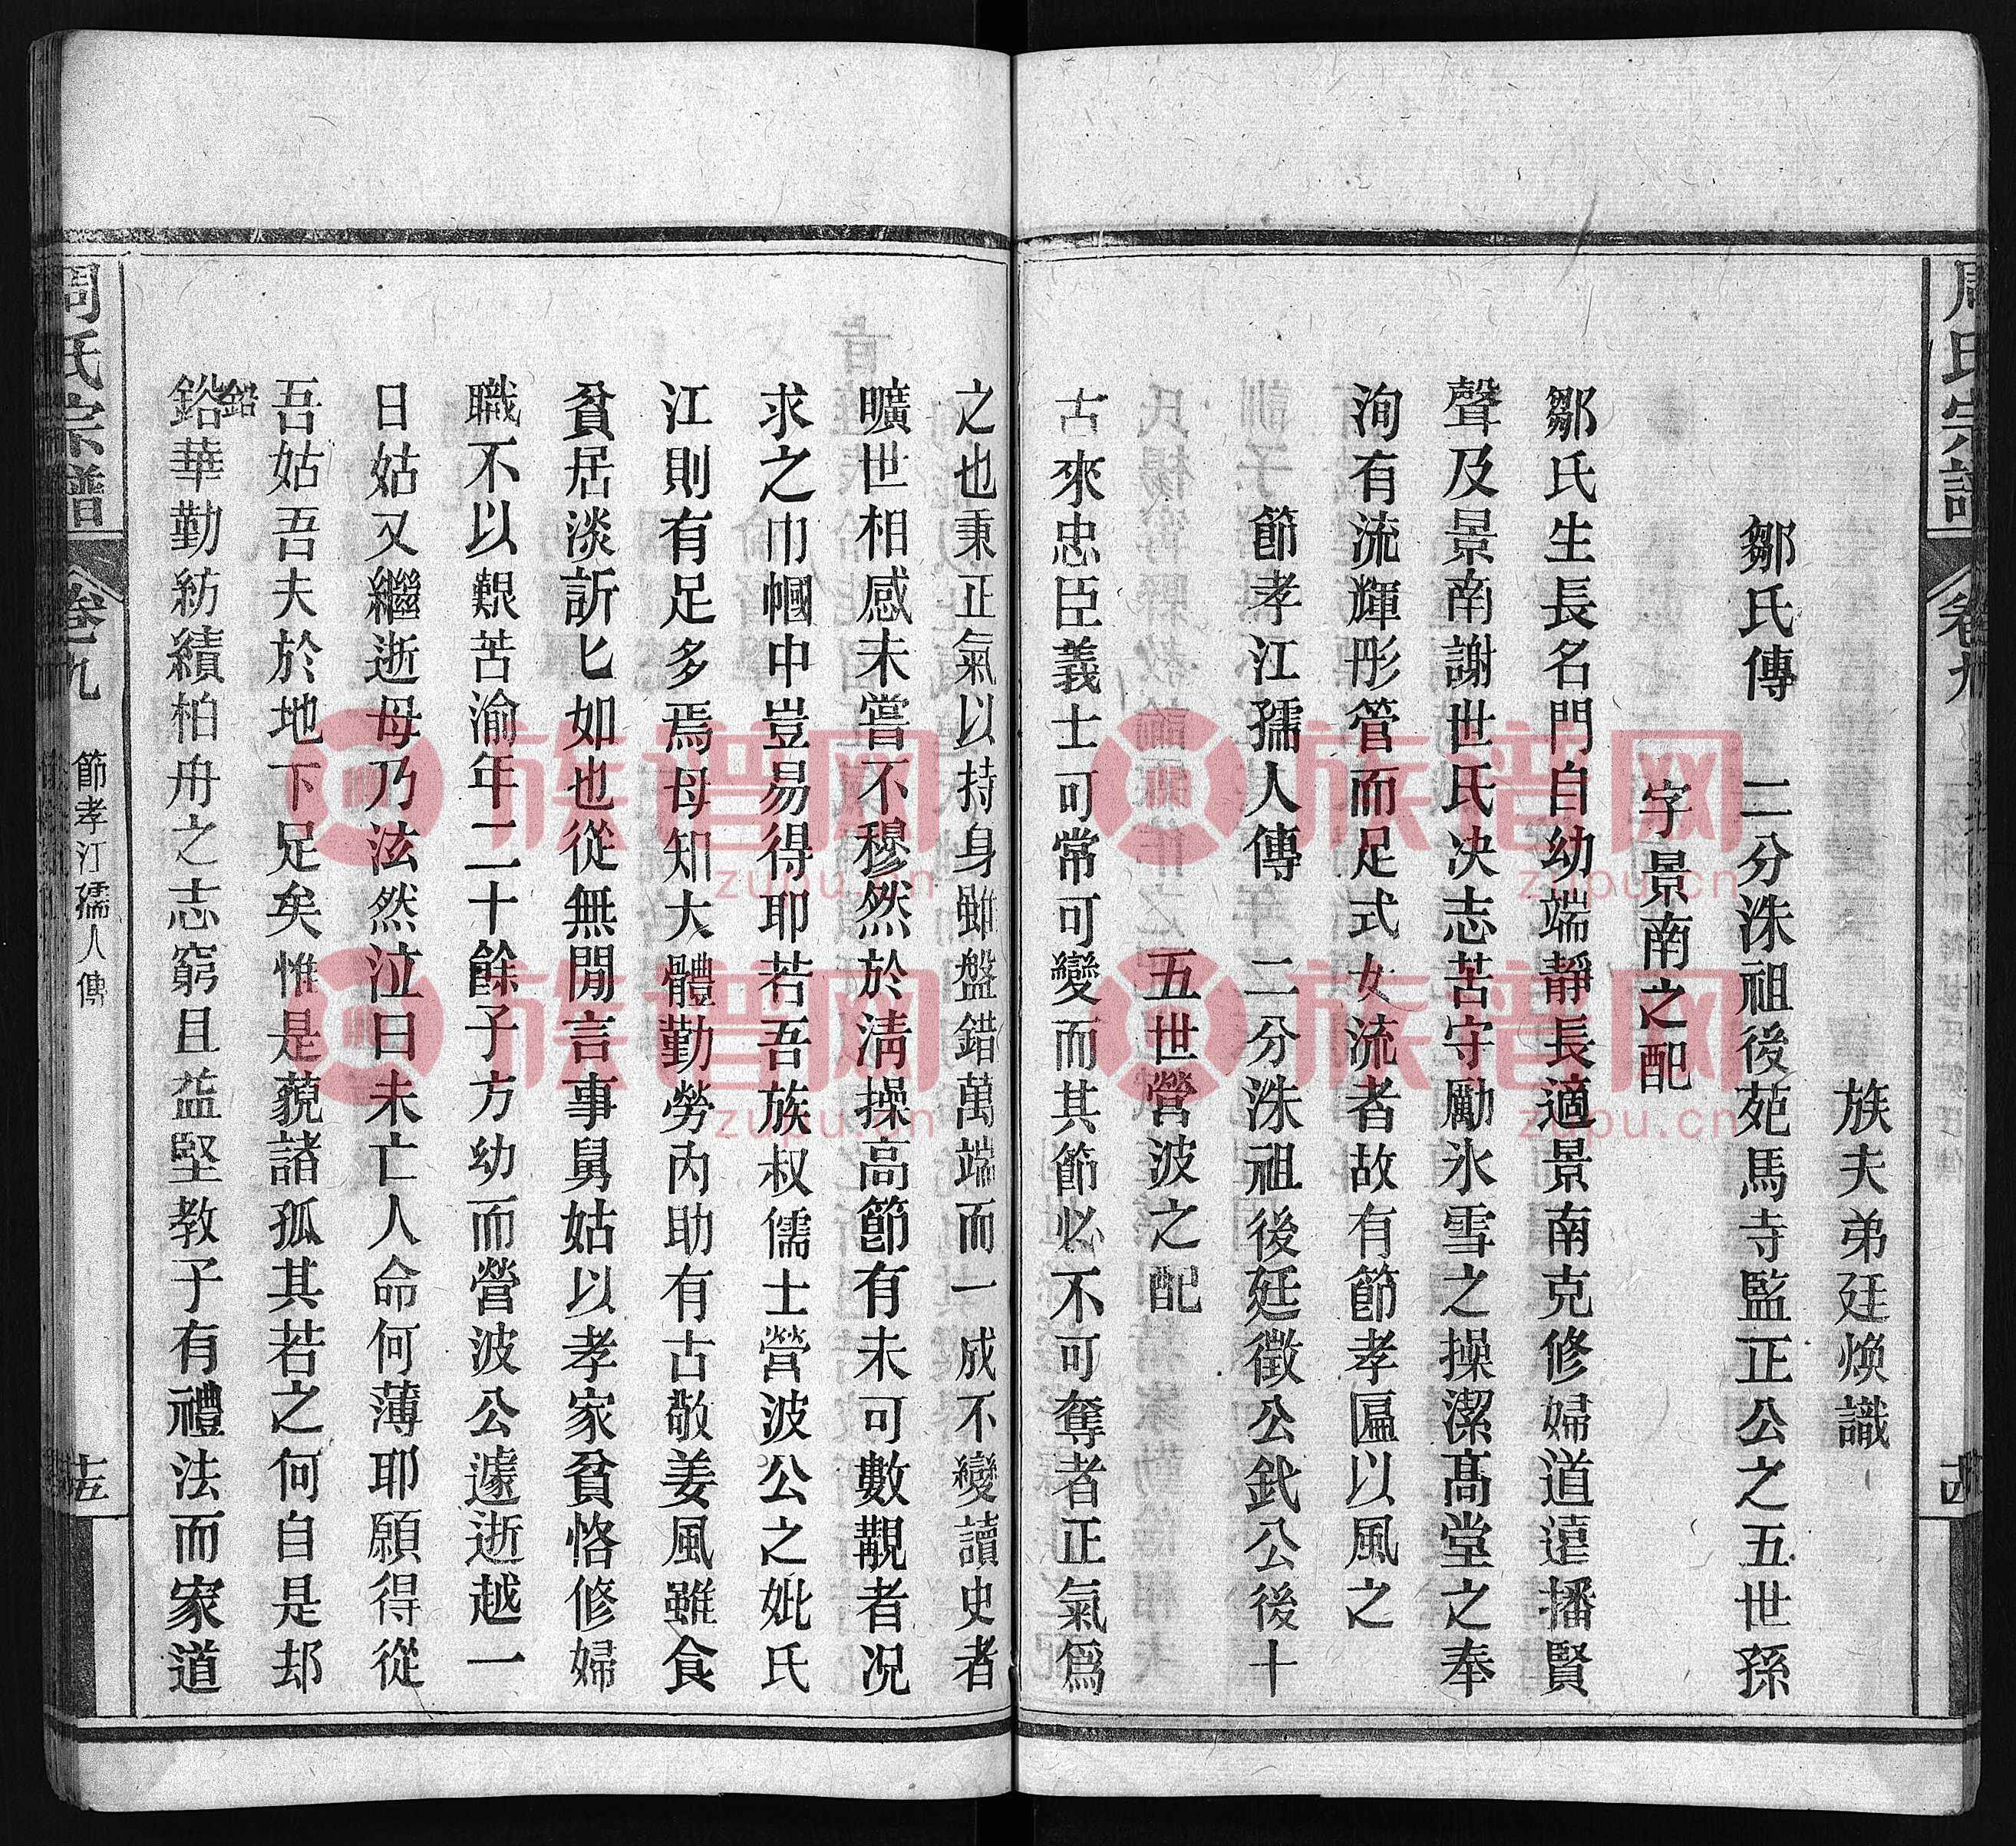 周氏宗譜 卷九 十四
族夫弟廷煥識
鄒氏傳 二分洙祖後苑馬寺監正公之五世孫
字景南之配
鄒氏生長名門自幼端靜長適景南克修婦道遠播賢
聲及景南謝世氏決志苦守勵氷雪之操潔髙堂之奉
洵有流輝彤管而足式女流者故有節孝匾以風之
節孝江孺人傳 二分洙祖後廷徵公武公後十
五世營波之配
古來忠臣義士可常可變而其節必不可奪者正氣爲
之也秉正氣以持身雖盤錯萬端而一成不變讀史者
曠世相感未嘗不穆然於淸操高節有未可數覯者况
求之巾幗中豈易得耶若吾族叔儒士營波公之妣氏
江則有足多焉母知大體勤勞內助有古敬姜風雖食
貧居淡訢匕如也從無閒言事舅姑以孝家貧恪修婦
職不以艱苦渝年二十餘子方幼而營波公遽逝越一
日姑又繼逝母乃泫然泣曰未亡人命何薄耶願得從
吾姑吾夫於地下足矣惟是藐諸孤其若之何自是却
鉛
鉛華勤紡績柏舟之志窮且益堅教子有禮法而家道
周氏宗譜 卷九 節孝江孺人傳 十五
族谱网 zupu.cn
族谱网 zupu.cn
族谱网 zupu.cn
族谱网 zupu.cn